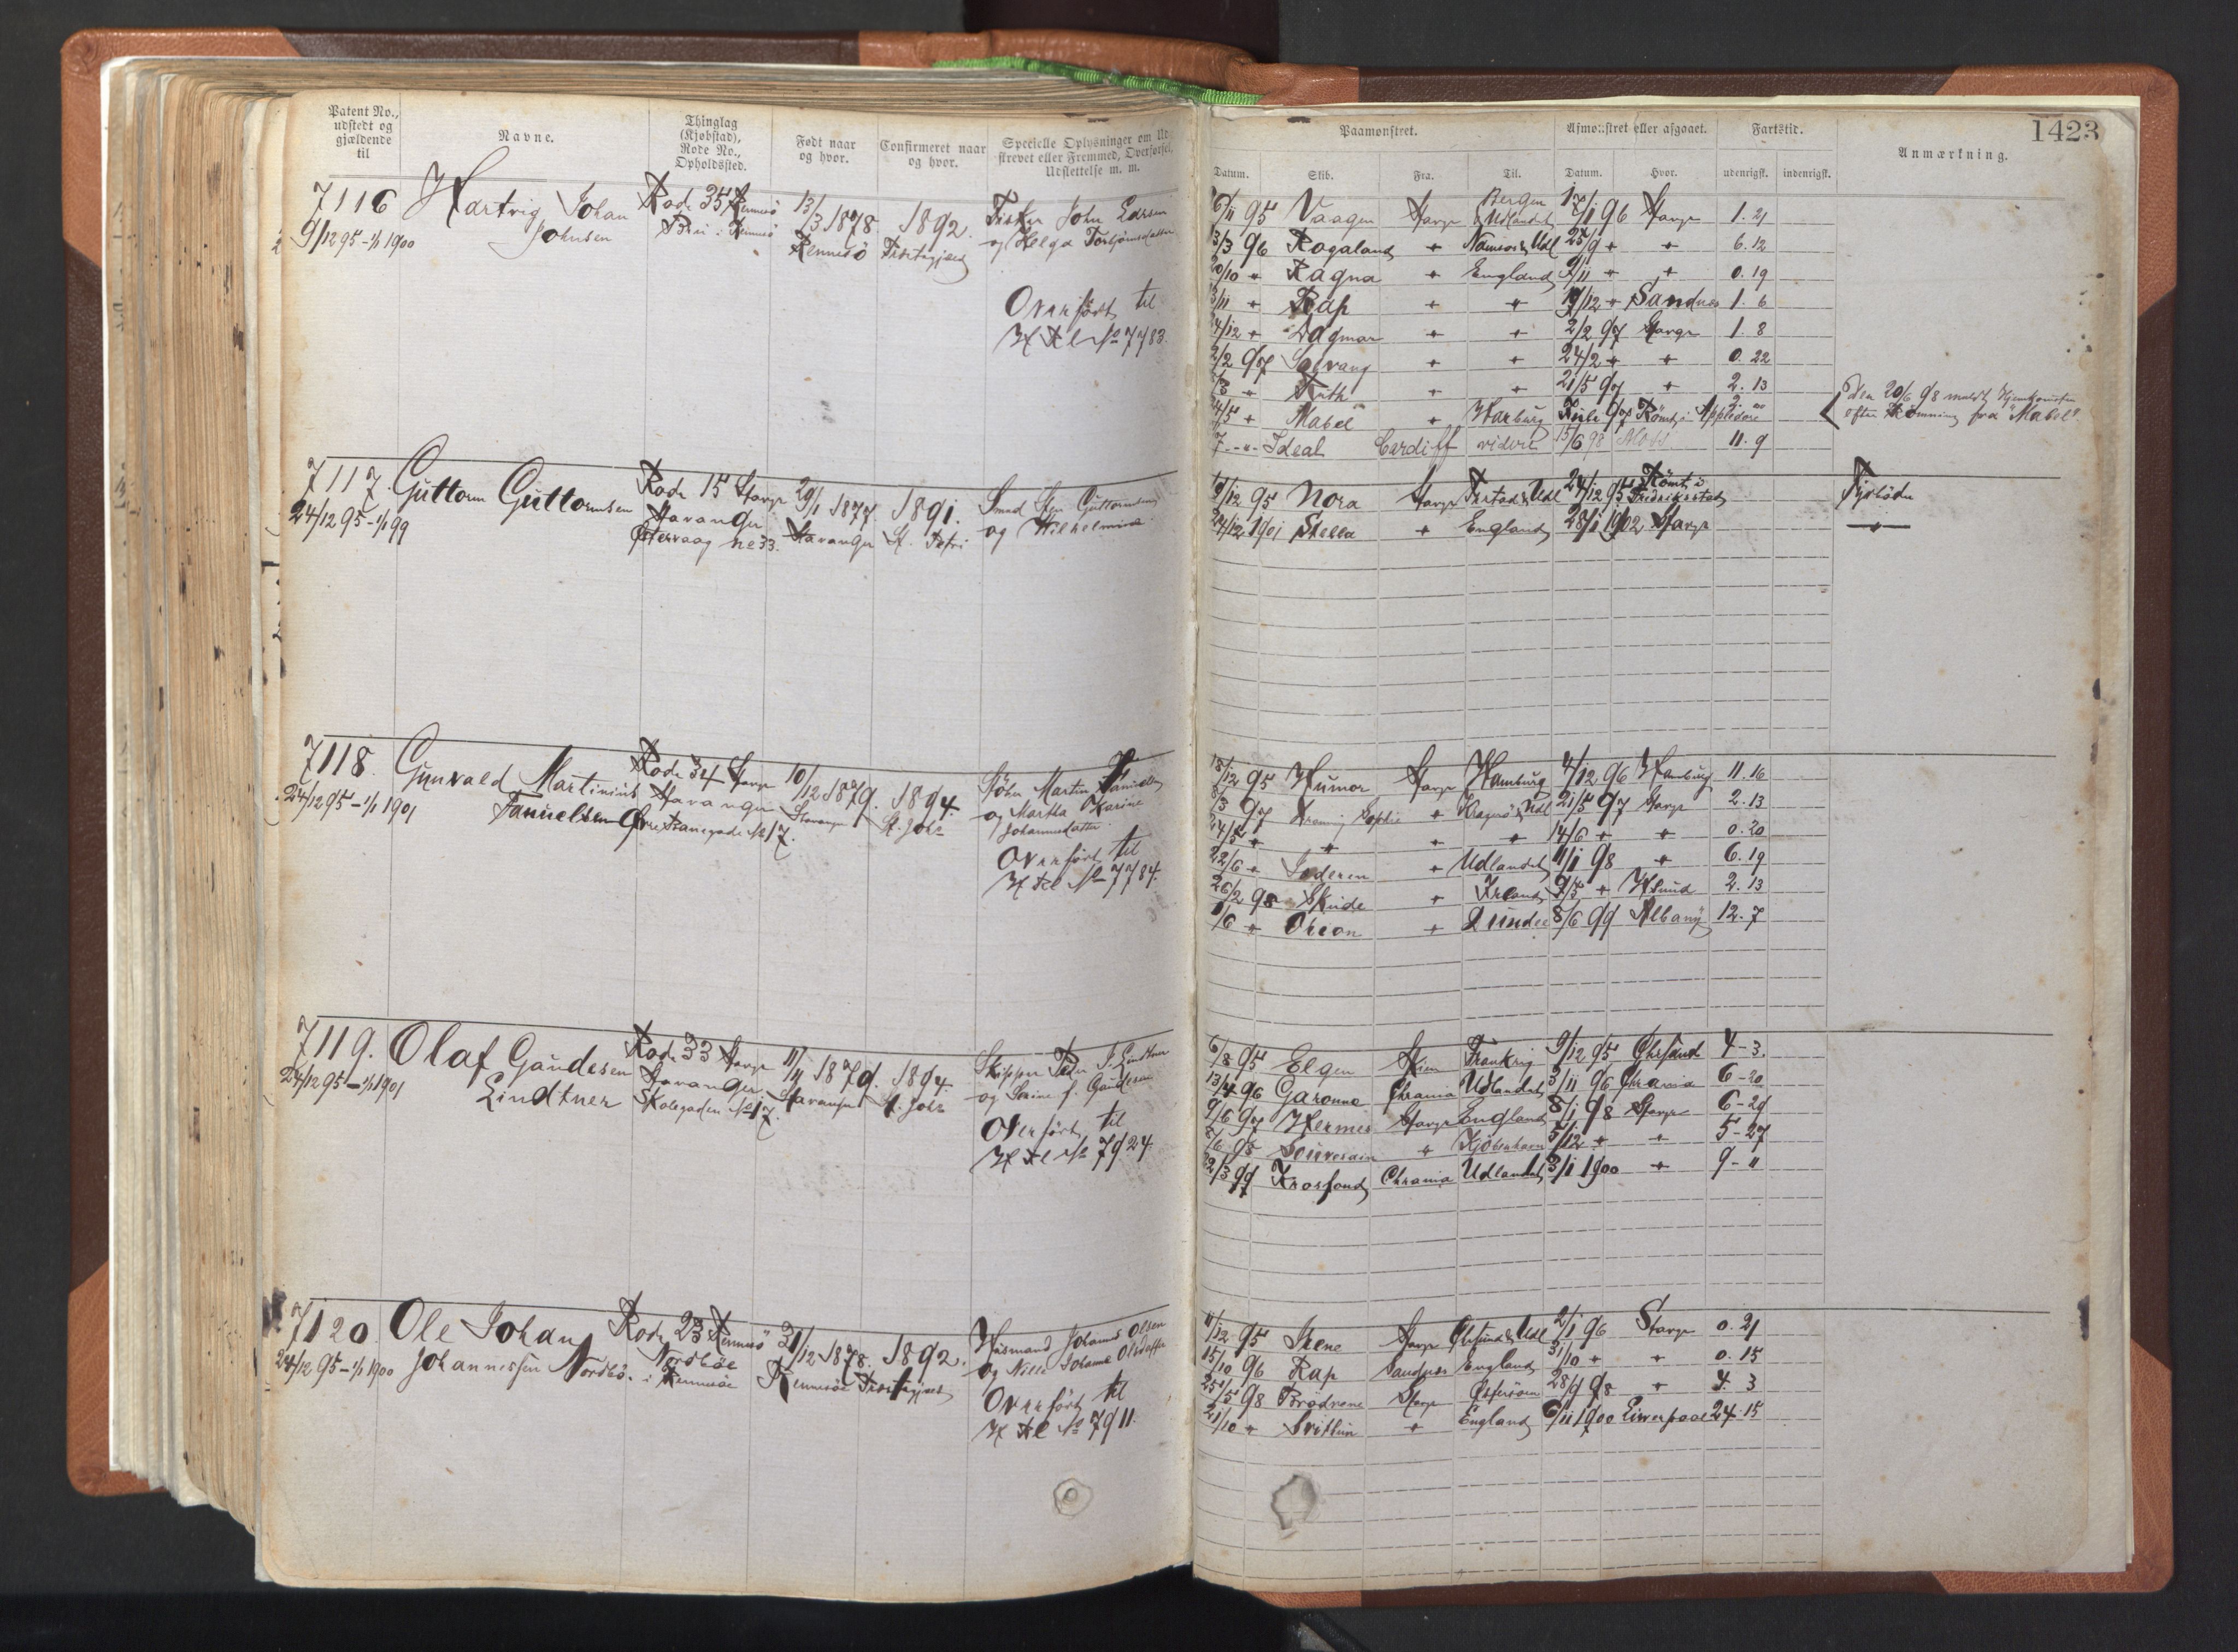 1423
Patent No., udstedt og gjældende til
Navne.
Thinglag (Kjøbstad), Rode No., Opholdssted.
Født naar og hvor.
Confirmeret naar og hvor.
Specielle Oplysninger om Ud-
skrevet eller Fremmed, Overførsel,
Udslettelse m. m.
Paamønstret.
Afmønstret eller afgaaet.
Fartstid.
Anmærkning.
Datum. Skib. Fra. Til. Datum. Hvor. udenrigsk. indenrigsk.
7116 Hartvig Johan Rode 35 Rennesö 13/3 1878. 1892. Fisker John Larsen
9/12 95 - 1/1 1900 Johnsen i Rennesö Rennesö og Helga
Overført til
H Rl No 7783.
6/11 95 Vaagen Stavgr Bergen & Udlandet 17/1 96 Stavgr 1. 21
3/3 96 Rogaland + Udl 25/9 + + 6. 12
20/10 + Ragna + England 9/11 + + 0. 19
3/11 + Rap + + 19/12 + Sandnæs 1. 6
4/12 + Dagmar + + 2/2 97 Stavgr 1. 8
2/2 97 Solvang + + 24/2 + + 0. 22
/3 + Ruth + + 21/5 97 + 2. 13
24/5 + Mabel + Harburg Juli 97 Römt i Appledore
Den 20/6 98 meldt Hjemkomsten
efter Römning fra "Mabel"
7 - - Ideal Cardiff videre 15/6 98 Moss 11. 9
7117. Guttorm Guttormsen Rode 15 Stavgr 29/1 1877. 1891. Smed Guttormsen
24/12 95 - 1/1 99 Stavanger Stavanger St. Petri og Wilhelmine
Østervaag No 33.
/12 95 Nora Stavgr Udl 24/12 95 Römt i Fredriksstad
24/12 1901 Stella + England 28/1 1902 Stavgr
7118. Gunvald Martinius Rode 34 Stavgr 10/12 1879. 1894. Martin Danielsen
24/12 95 - 1/1 1901 Danielsen Stavanger Stavanger St. Johs og Martha Karine
No 17. Johannesdatter
Overført til
H Rl No 7784.
/12 95 Humor Stavgr Hamburg 4/12 96 Hamburg 11. 16
/3 97 Sophie + Kragerö & Udl 21/5 97 Stavgr 2. 13
24/5 + + + + 14/6 + + 0. 20
22/6 + Jæderen + Udlandet 11/1 98 + 6. 19
26/2 98 Skude + Irland 9/5 + 2. 13
1/6 + Orion + Dundee 8/6 99 Albany 12. 7
7119. Olaf Gaudesen Rode 33 Stavgr 11/ 1879. 1894. Skipper Peder Lindtner
24/12 95 - 1/1 1901 Lindtner Stavanger Stavanger St. Johs og f. Gaudesen
Skolegaden No 17.
Overført til
H Rl No 7924.
6/8 95 Elgen Skien Frankrig 9/12 95 Chrsand 4 - 3.
13/4 96 Garonne Chrania Udlandet 3/11 96 Chrania 6 - 20
9/6 97 Hermes Stavgr England 8/1 98 Stavgr 6 - 29
/6 98 Souverain + Kjöbenhavn 5/12 + + 5 - 27
2/3 99 Krosfond Chrania Udlandet 3/1 1900 + 9 - "
7120 Ole Johan Rode 23 Rennesö 31/12 1878. 1892. Husmand Johannes Olsen
24/12 95 - 1/1 1900 Johannessen Nordbö. Nordböe i Rennesöe Rennesöe og Johanne Olsdatter
Overført til
H Rl No 7911.
11/12 95 Irene Stavgr Chrsund & Udl 2/1 96 Stavgr 0. 21
15/10 96 Rap Sandnæs England 31/10 + + 0. 15
25/5 98 Brödrene Stavgr Østersöen 28/9 98 + 4. 3
21/10 + Svithun + England 6/11 1900 Liverpool 24. 15